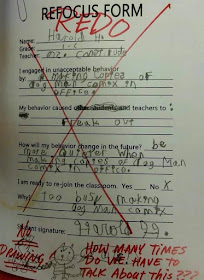 REFOCUS FORM
REDO
Name: Harold H.
Grade:
Teacher: mz. Construde
I engaged in unacceptable behavior
by: making copies of
dog man comix in
office.
My behavior caused other students and teachers to:
Freak out
How will my behavior change in the future? be
more quieter when
making copies of dog man
comix in office.
I am ready to re-join the classroom. Yes No X
Why? too busy making
dog man comix
signature: Harold H.
NO
DRAWING
HOW MANY TIMES
DO WE HAVE TO
TALK ABOUT THIS???